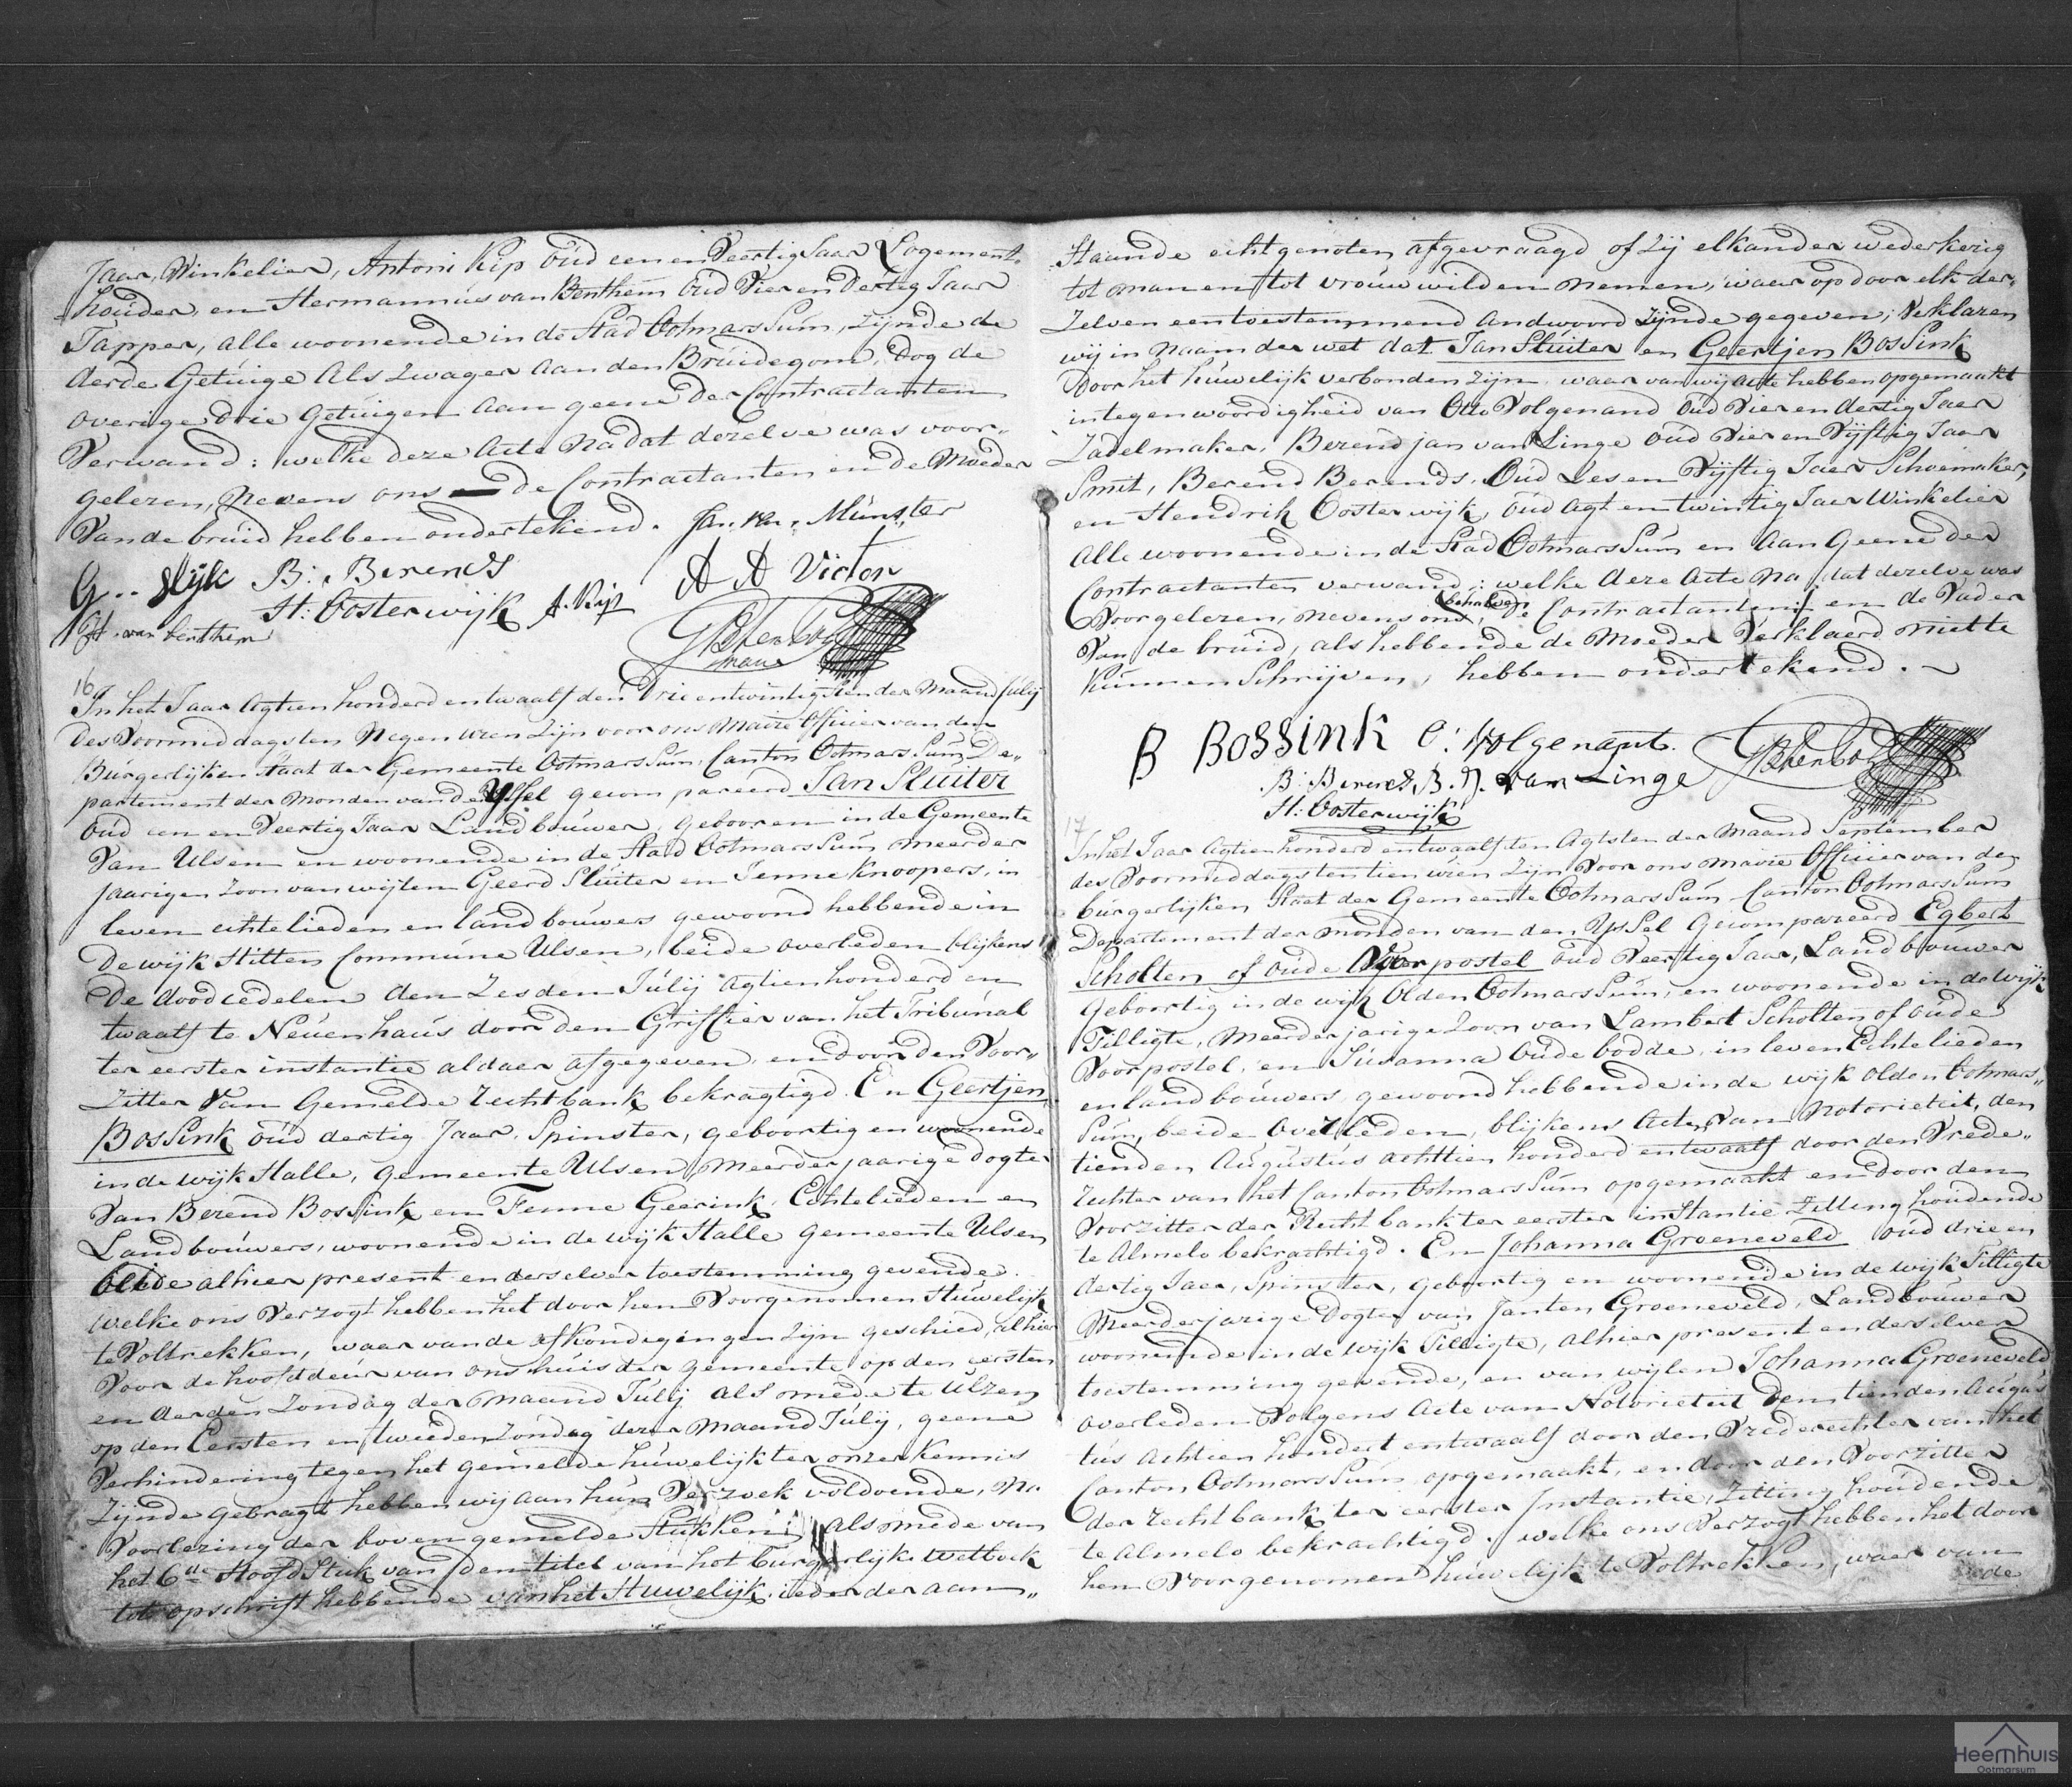 Jaar, Winkelier, Antoni Kip Oud een en Veertig Jaar Logement-
houder, en Hermannus van Benthem Oud Vier en Dertig Jaar
Tapper, alle woonende in de Stad OotmarsSum, zijnde de
derde Getuige Als Zwager Aan den Bruidegom, Dog de
overige Drie Getuigen Aan geene Der Contractanten
Verwand: welke deze Acte Na dat dezelve was voor-
gelezen, Nevens ons de Contractanten en de Moeder
Van de bruid hebben ondertekend. Jan van Münster
G.. Slijk B: Berends A A Victor
H: Oosterwijk A. Kip
H. van benthem
maire
16
In het Jaar Agtien honderd en twaalf den Drie entwintigsten der Maand July
Des Voormiddags ten Negen uren Zijn voor ons Maire Officier van den
Burgerlijken Staat der Gemeente OotmarsSum, Canton OotmarsSum, De-
partement der Monden van De Yssel gecompareerd Jan Sluiter
Oud een en Veertig Jaar Landbouwer, gebooren in de Gemeente
Van Ulsen en woonende in de Stad OotmarsSum meerder
jaarigen Zoon van wijlen Geerd Sluiter en Jenne Knoopers, in
leven echtelieden en landbouwers gewoond hebbende in
De wijk Hilten Commúne Ulsen, beide overleden blijkens
De doodcedelen den Zesden Július Agtienhonderd en
twaalf te Neúenhaús door den Griffier van het Tribúnal
ter eerster instantie aldaer afgegeven en door den Voor-
Zitter Van Gemelde rechtbank bekragtigd. En Geertjen
BosSink oúd dertig Jaar, Spinster, geboortig en woonende
in de wijk Halle, gemeente Ulsen, Meerderjaarige Dogter
Van Berend BosSink en Fenne Geerink, Echtelieden en
Landboúwers, woonende in de wijk Halle Gemeente Ulsen
beide alhier present en derselver toestemming gevende.
welke ons Verzogt hebben het door hen Voorgenomen Húwelijk
te Voltrekken, waar van de afkondegingen zijn geschied, alhier
Voor de hoofddeúr van ons huis der gemeente op den eersten
en derden Zondag der maand Julij als mede te Ulzen
op den Eersten en tweeden Zondag dezer Maand Júlij, geene
Verhindering tegen het gemelde húwelijk ter onzer Kennis
Zijnde gebragt hebben wij aan hún Verzoek voldoende, Na
Voorlezing der boven gemelde Stukken, als mede van
het 6de HoofdStuk van den titel van het burgerlijk Wetboek
tot opschrift hebbende van het Huwelijk, ieder der aan-
Staande echtgenoten afgevraagd of zij elkander wederkerig
tot man en tot vroúw wilden nemen, waer op door elk der-
Zelven een toestemmend Andwoord zijnde gegeven; Verklaren
wij in Naam der wet dat Jan Sluiter en Geertjen BosSink
Door het húwelijk verbonden zijn. waar van wij Acte hebben opgemaakt
in tegenwoordigheid van Otto Volgenand Oúd Vier en dertig Jaer
Zadelmaker, Berend jan van Linge oúd Vier en Vijftig Jaar
Smit, Berend Berends, Oúd Zes en Vijftig Jaer Schoemaker,
en Hendrik Oosterwijk, oúd Agt en twintig Jaer Winkelier
Alle woonende in de Stad OotmarsSúm en Aan Geene der
Contractanten verwand: welke deze Acte Na dat dezelve was
behalven
Voorgelezen, nevens ons, De Contractanten en de Vader
Van de bruid, als hebbende de Moeder Verklaerd niet te
Kúnnen Schrijven, hebben ondertekend.
B BOSSink O: Volgenant.
B: Berends, B. J. van Linge
H: Oosterwijk
17
In het Jaar Agtien honderd entwaalf den Agtsten der Maand September
des Voormiddags ten tien uren Zijn Voor ons Maire Officier van den
búrgerlijken Staat der Gemeente OotmarsSúm Canton OotmarsSúm
Departement der Monden van den YpsSel Gecompareerd Egbert
Scholten of oude Voorpostel oud Veertig Jaar, Landboúwer
Geboortig in de wijk Olden OotmarsSúm, en woonende in de Wijk
Tilligte, Meerderjarige Zoon van Lambert Scholten of oúde
Voorpostel, en Súsanna Oúde bodde, in leven Echtelieden
en landboúwers, gewoond hebbende in de wijk Olden Ootmars-
Súm, beide Overleden, blijkens Acte van Notorieteit, den
tienden Aúgústús achttien honderd entwaalf door den Vrede-
rechter van het Canton OotmarsSum opgemaakt en door den
Voorzitter der Rechtbank ter eerster instantie Zitting houdende
te Almelo bekrachtigd. En Johanna Groeneveld oúd drie en
dertig Jaer, Spinster, geboortig en woonende in de wijk Tilligte
Meerderjarige Dogter van Janten Groeneveld, Landboúwer
woonende in de wijk Tilligte, alhier present en derselver
toestemming gevende, en van wijlen Johanna Groeneveld
overleden Volgens Acte van Notorieteit Den tienden Aúgús
tús Achtien hondert entwaalf door den Vrederechter van het
Canton OotmarsSúm opgemaakt, en door den Voorzitter
der rechtbank ter eerster Instantie, Zitting hoúdende
te Almelo bekrachtigd. welke ons Verzogt hebben het door
hen Voorgenomen húwelijk te Voltrekken, waer van
de
Heemhuis
Ootmarsum